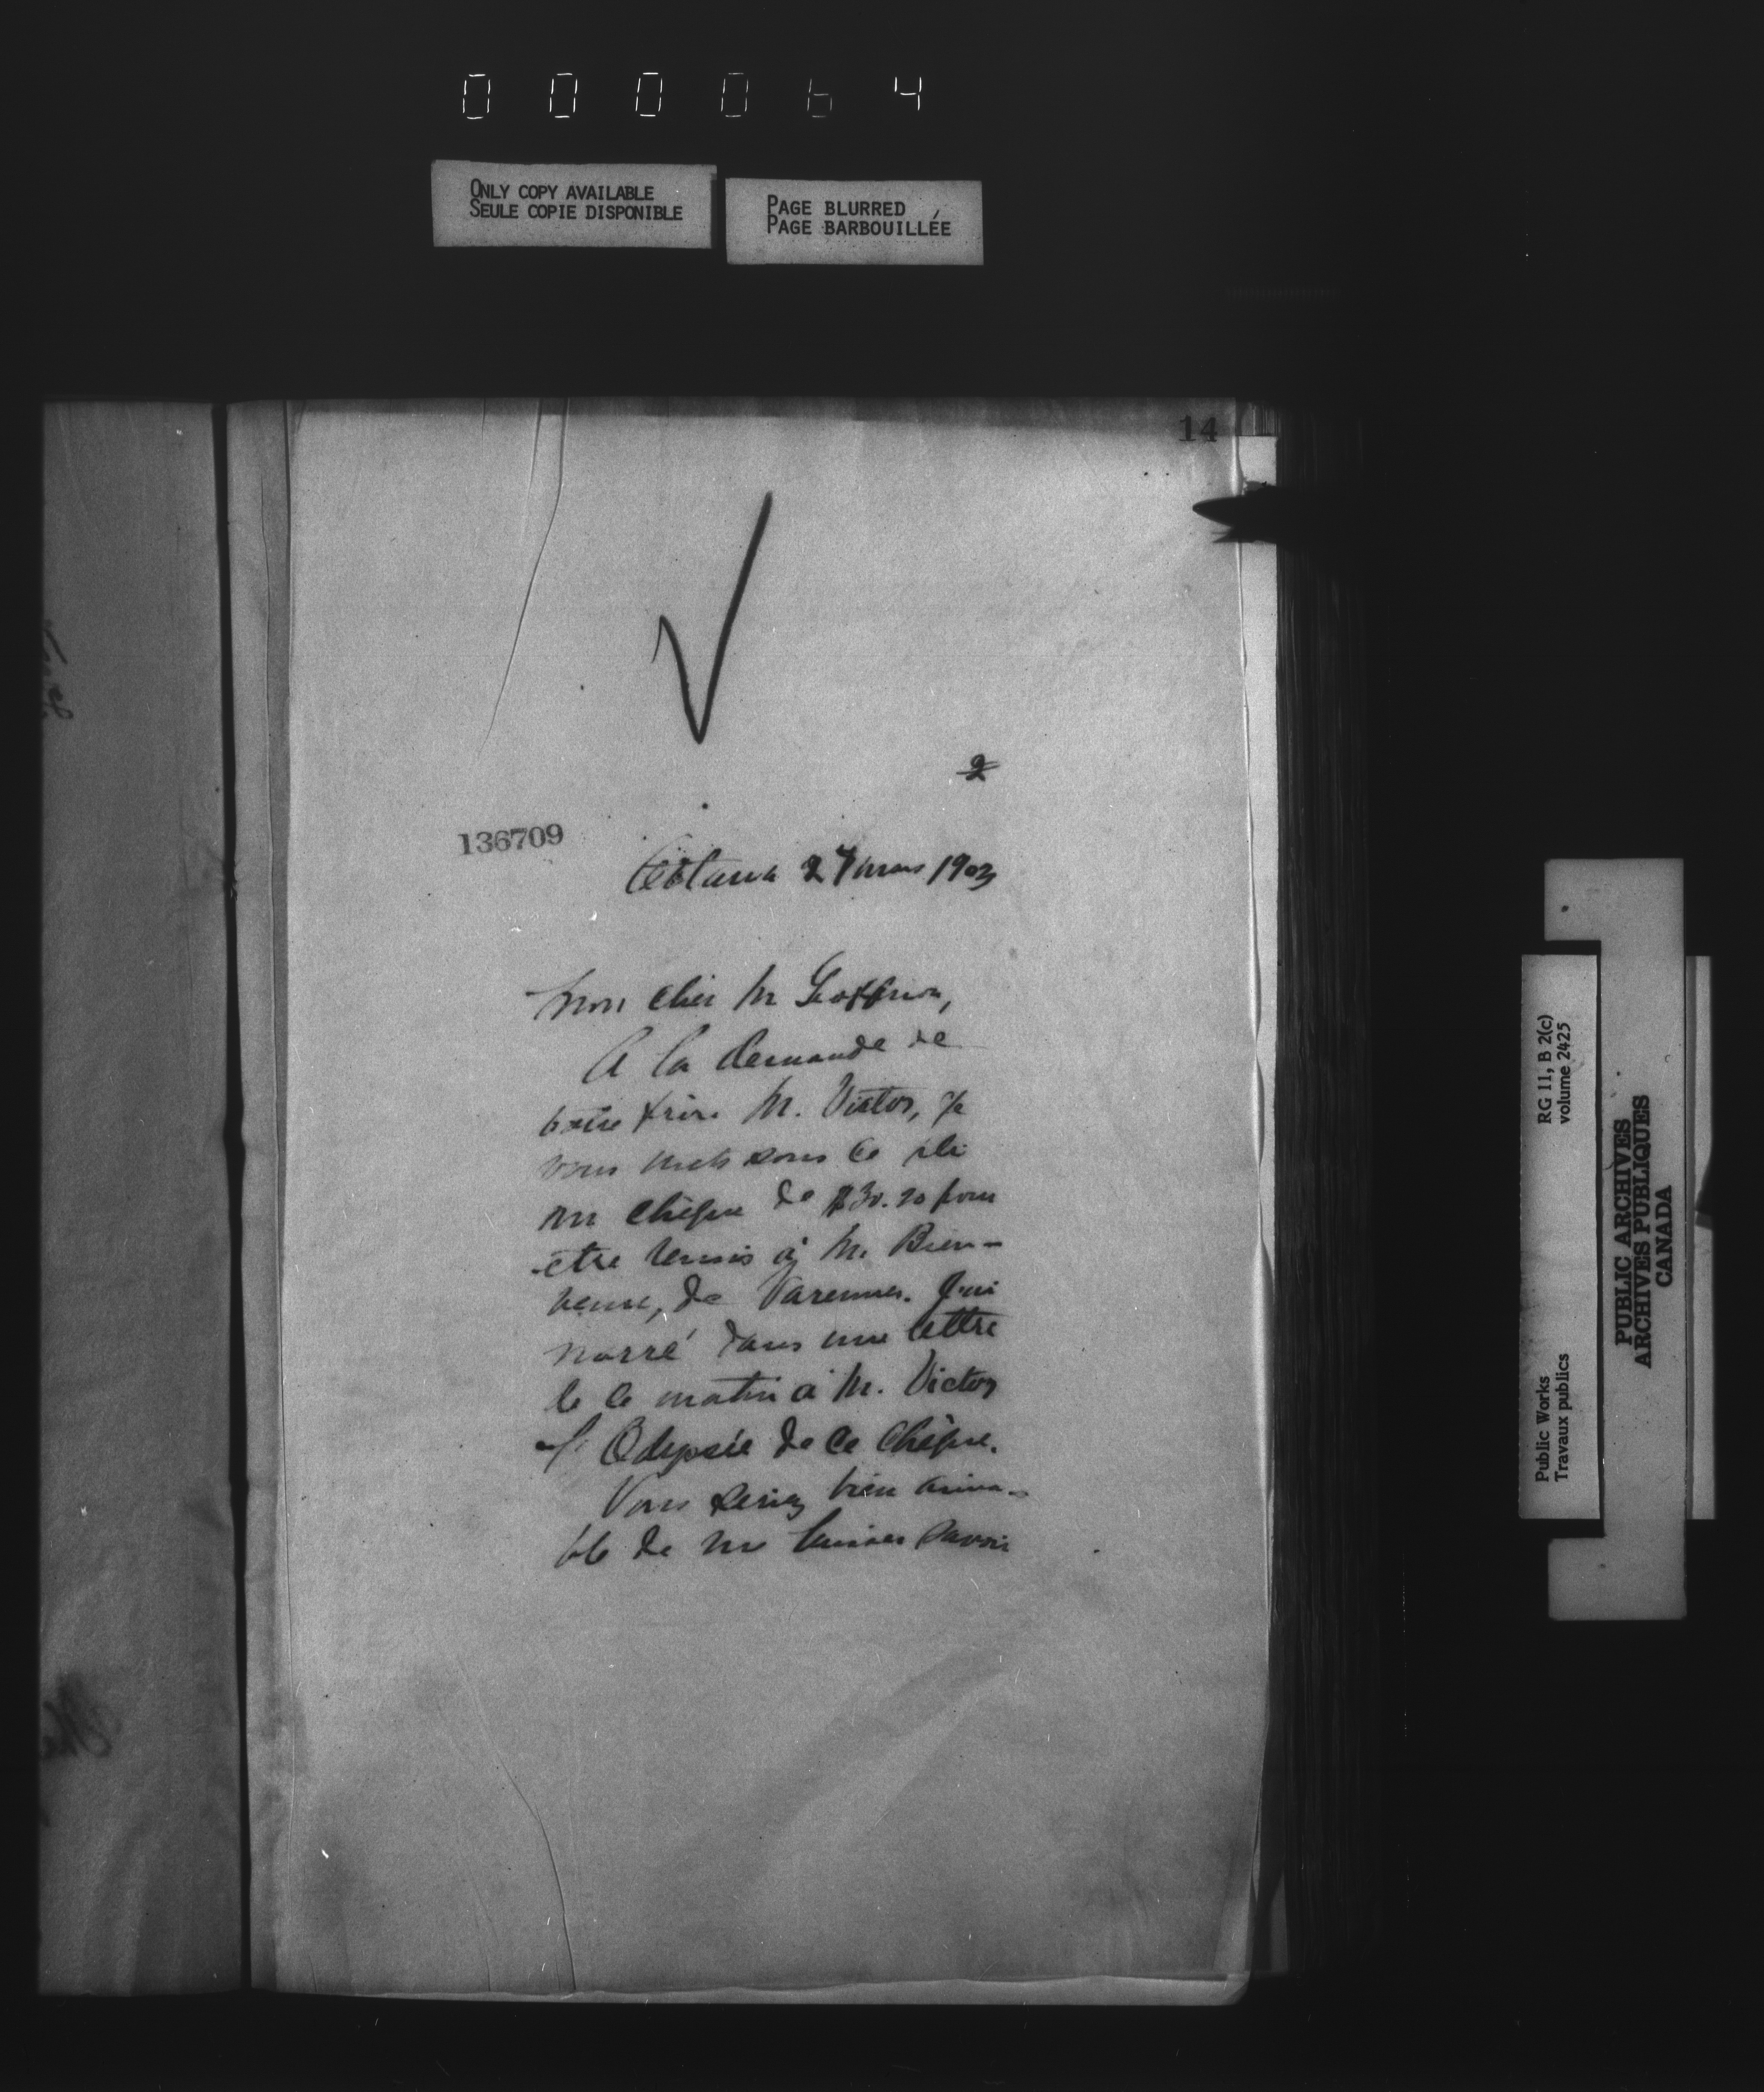 000064
ONLY COPY AVAILABLE
SEULE COPIE DISPONIBLE
PAGE BLURRED
PAGE BARBOUILLÉE
14
2
136709
Ottawa 27 mars 1903
Mon cher M Geoffrion,
A la demande de
votre frère M. Victor, je
vous mets sous ce pli
un chèque de $30.20 pour
être remis à M. Bien-
venue, de Varennes. J'ai
narré dans une lettre
de ce matin à M. Victor
l'Odyssée de ce chèque.
Vous seriez bien aima-
ble de me laisser savoir
Public Works
Travaux publics
RG 11, B 2(c)
volume 2425
PUBLIC ARCHIVES
ARCHIVES PUBLIQUES
CANADA